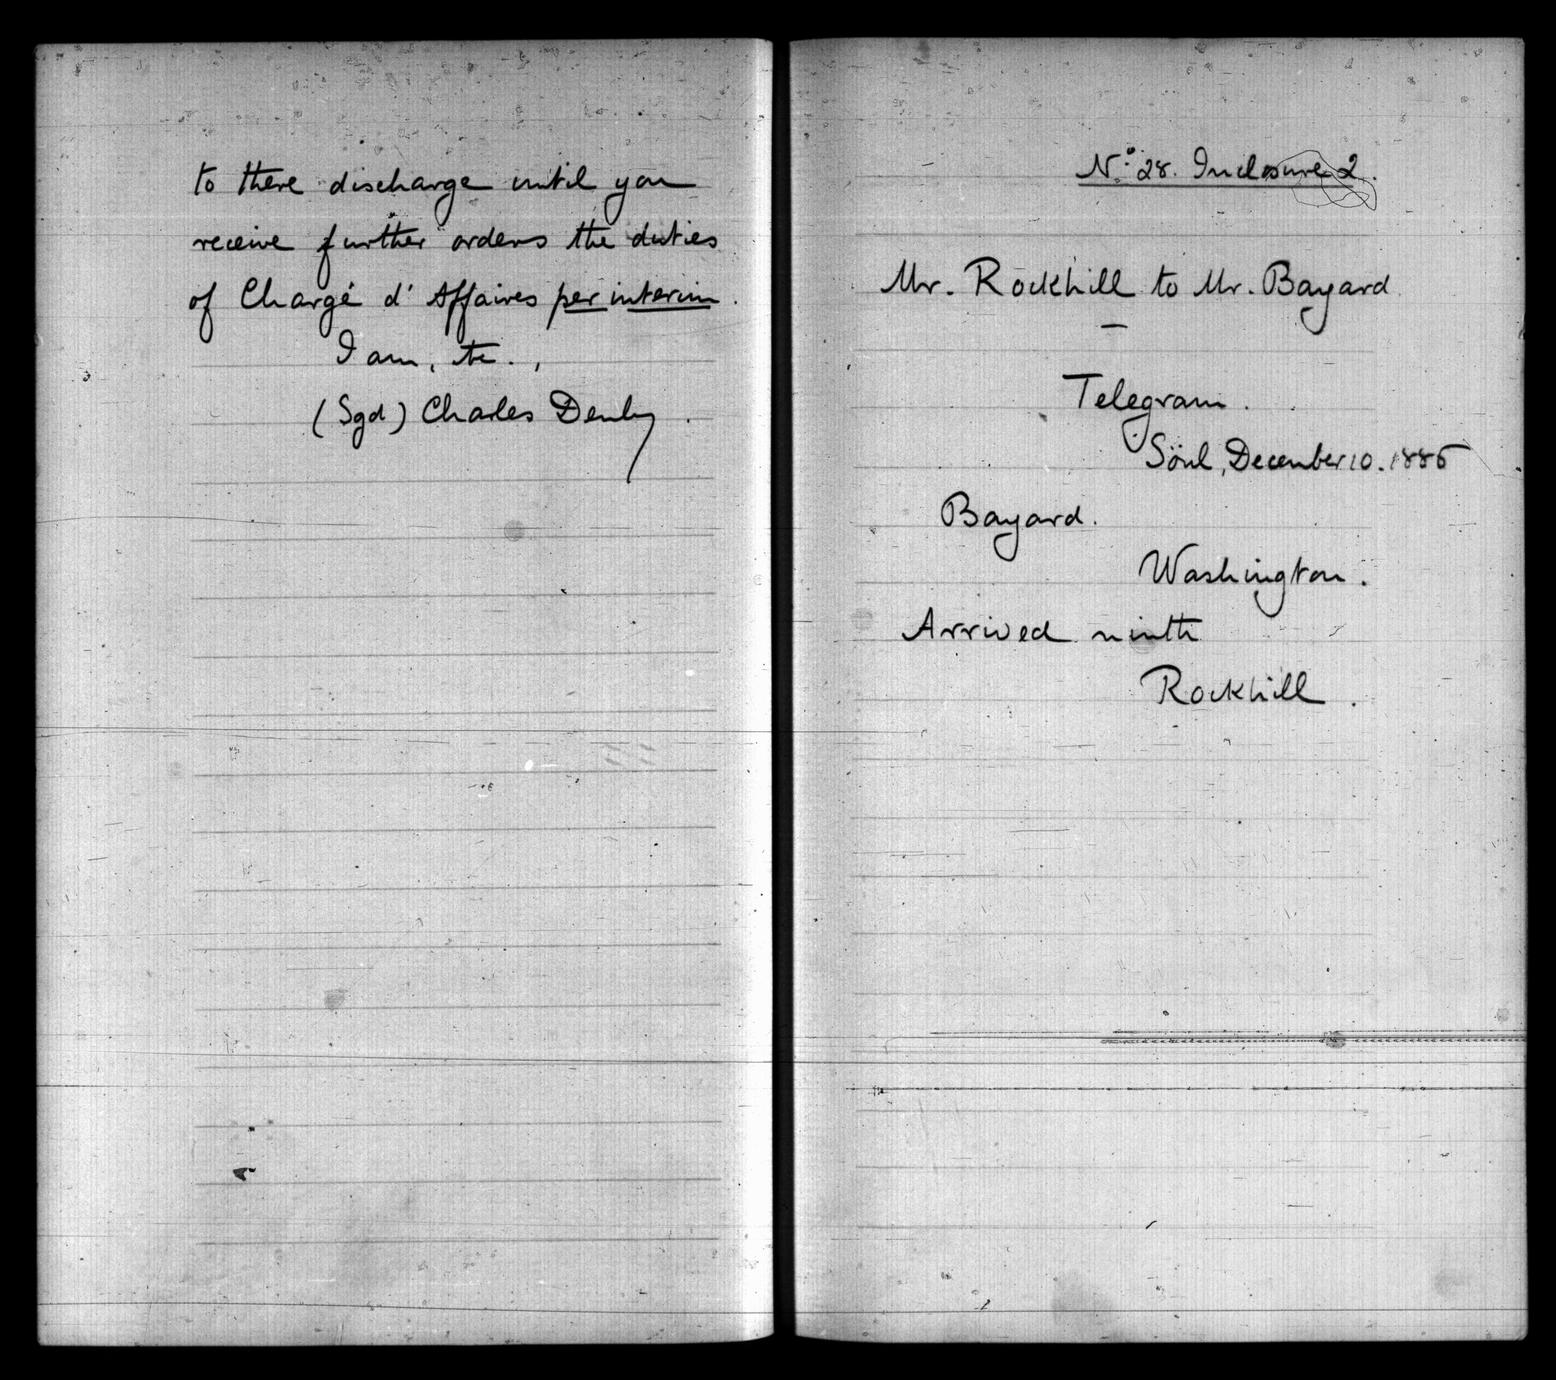 to there discharge until you
receive further orders the duties
of Chargé d' Affaires per interim.
I am, &c.,
(Sgd) Charles Denby.
No. 28. Inclosure 2.
Mr. Rockhill to Mr. Bayard
Telegram.
Söul, December 10. 1886
Bayard.
Washington.
Arrived ninth
Rockhill.